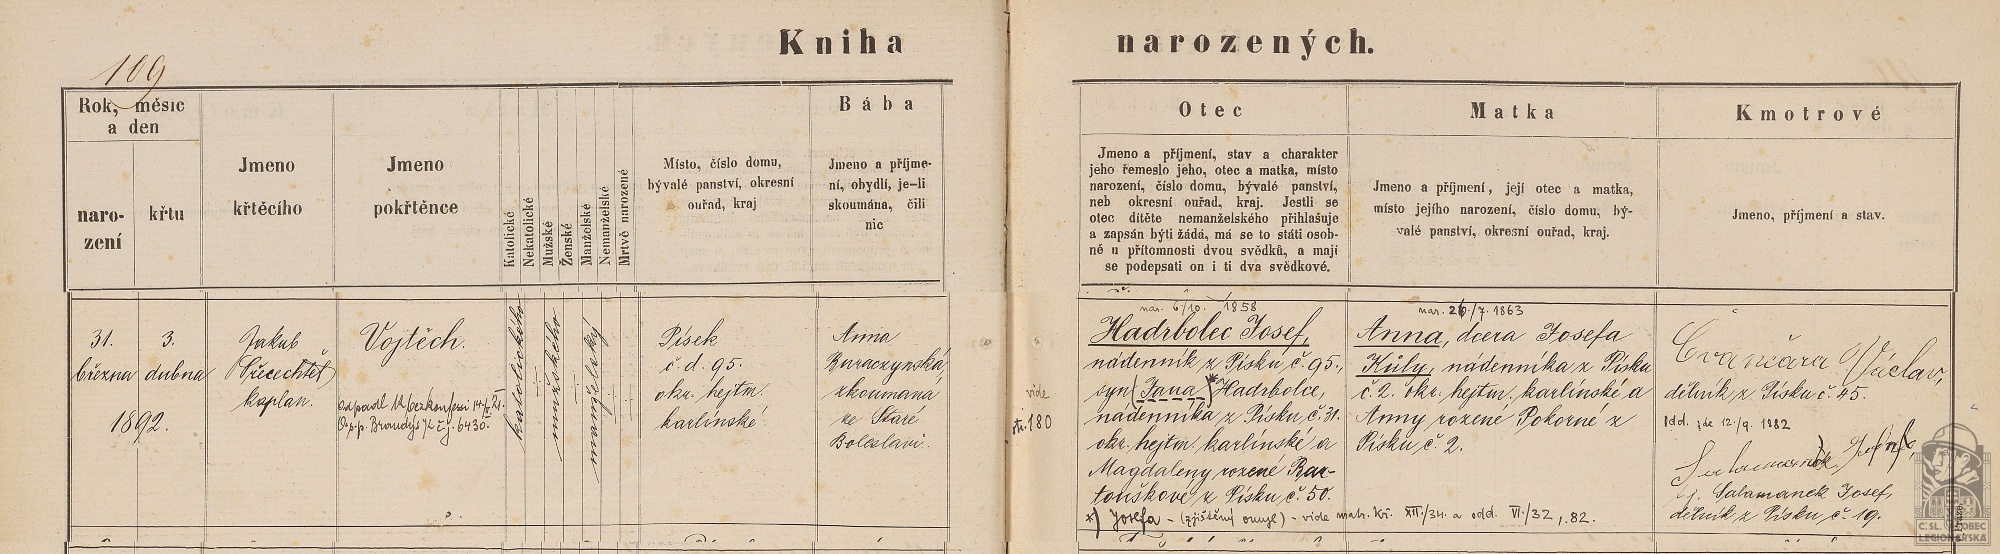 109
Kniha narozených.
Rok, měsíc
a den
naro-
zení
křtu
Jmeno
křtěcího
Jmeno
pokřtěnce
Katolické
Nekatolické
Mužské
Ženské
Manželské
Nemanželské
Mrtvě narozené
Místo, číslo domu,
bývalé panství, okresní
ouřad, kraj
Bába
Jmeno a příjme-
ní, obydlí, je-li
skoumána, čili
nic
Otec
Jmeno a příjmení, stav a charakter
jeho řemeslo jeho, otec a matka, místo
narození, číslo domu, bývalé panství,
neb okresní ouřad, kraj. Jestli se
otec dítěte nemanželského přihlašuje
a zapsán býti žádá, má se to státi osob-
ně u přítomnosti dvou svědků, a mají
se podepsati on i ti dva svědkové.
Matka
Jmeno a příjmení, její otec a matka,
místo jejího narození, číslo domu, bý-
valé panství, okresní ouřad, kraj.
Kmotrové
Jmeno, příjmení a stav.
31.
března
3.
dubna
1892.
Jakub
kaplan.
Vojtěch.
Odpadl k bezkonfessi 14/
O.p.p. Brandýs č.j. 6430.
katolického
mužského
manželský
Písek
č. d. 95.
okr. hejtm.
karlínské
Anna
Buraczynská
zkoumaná
ze Staré
Boleslavi.
vide
str. 180
nar. 6/10. 1858
Hadrbolec Josef,
nádenník z Písku č. 95.,
syn Jana *) Hadrbolce,
nádenníka z Písku č. 31.
okr. hejtm. karlínské a
Magdaleny rozené Bar-
touškové z Písku č. 50.
*) Josefa - (zjištěný omyl) - vide matr. kř. XII./34. a odd. VI./32, .82.
nar. 26/7. 1863
Anna, dcera Josefa
Kůly, nádenníka z Písku
č. 2. okr. hejtm. karlínské a
Anny rozené Pokorné z
Písku č. 2.
Čvančara Václav,
dělník z Písku č. 45.
odd. zde 12./9. 1882
Salamanek Josef,
j. Salamanek Josef,
dělník z Písku č. 19.
ČSL. OBEC
LEGIONÁŘSKÁ